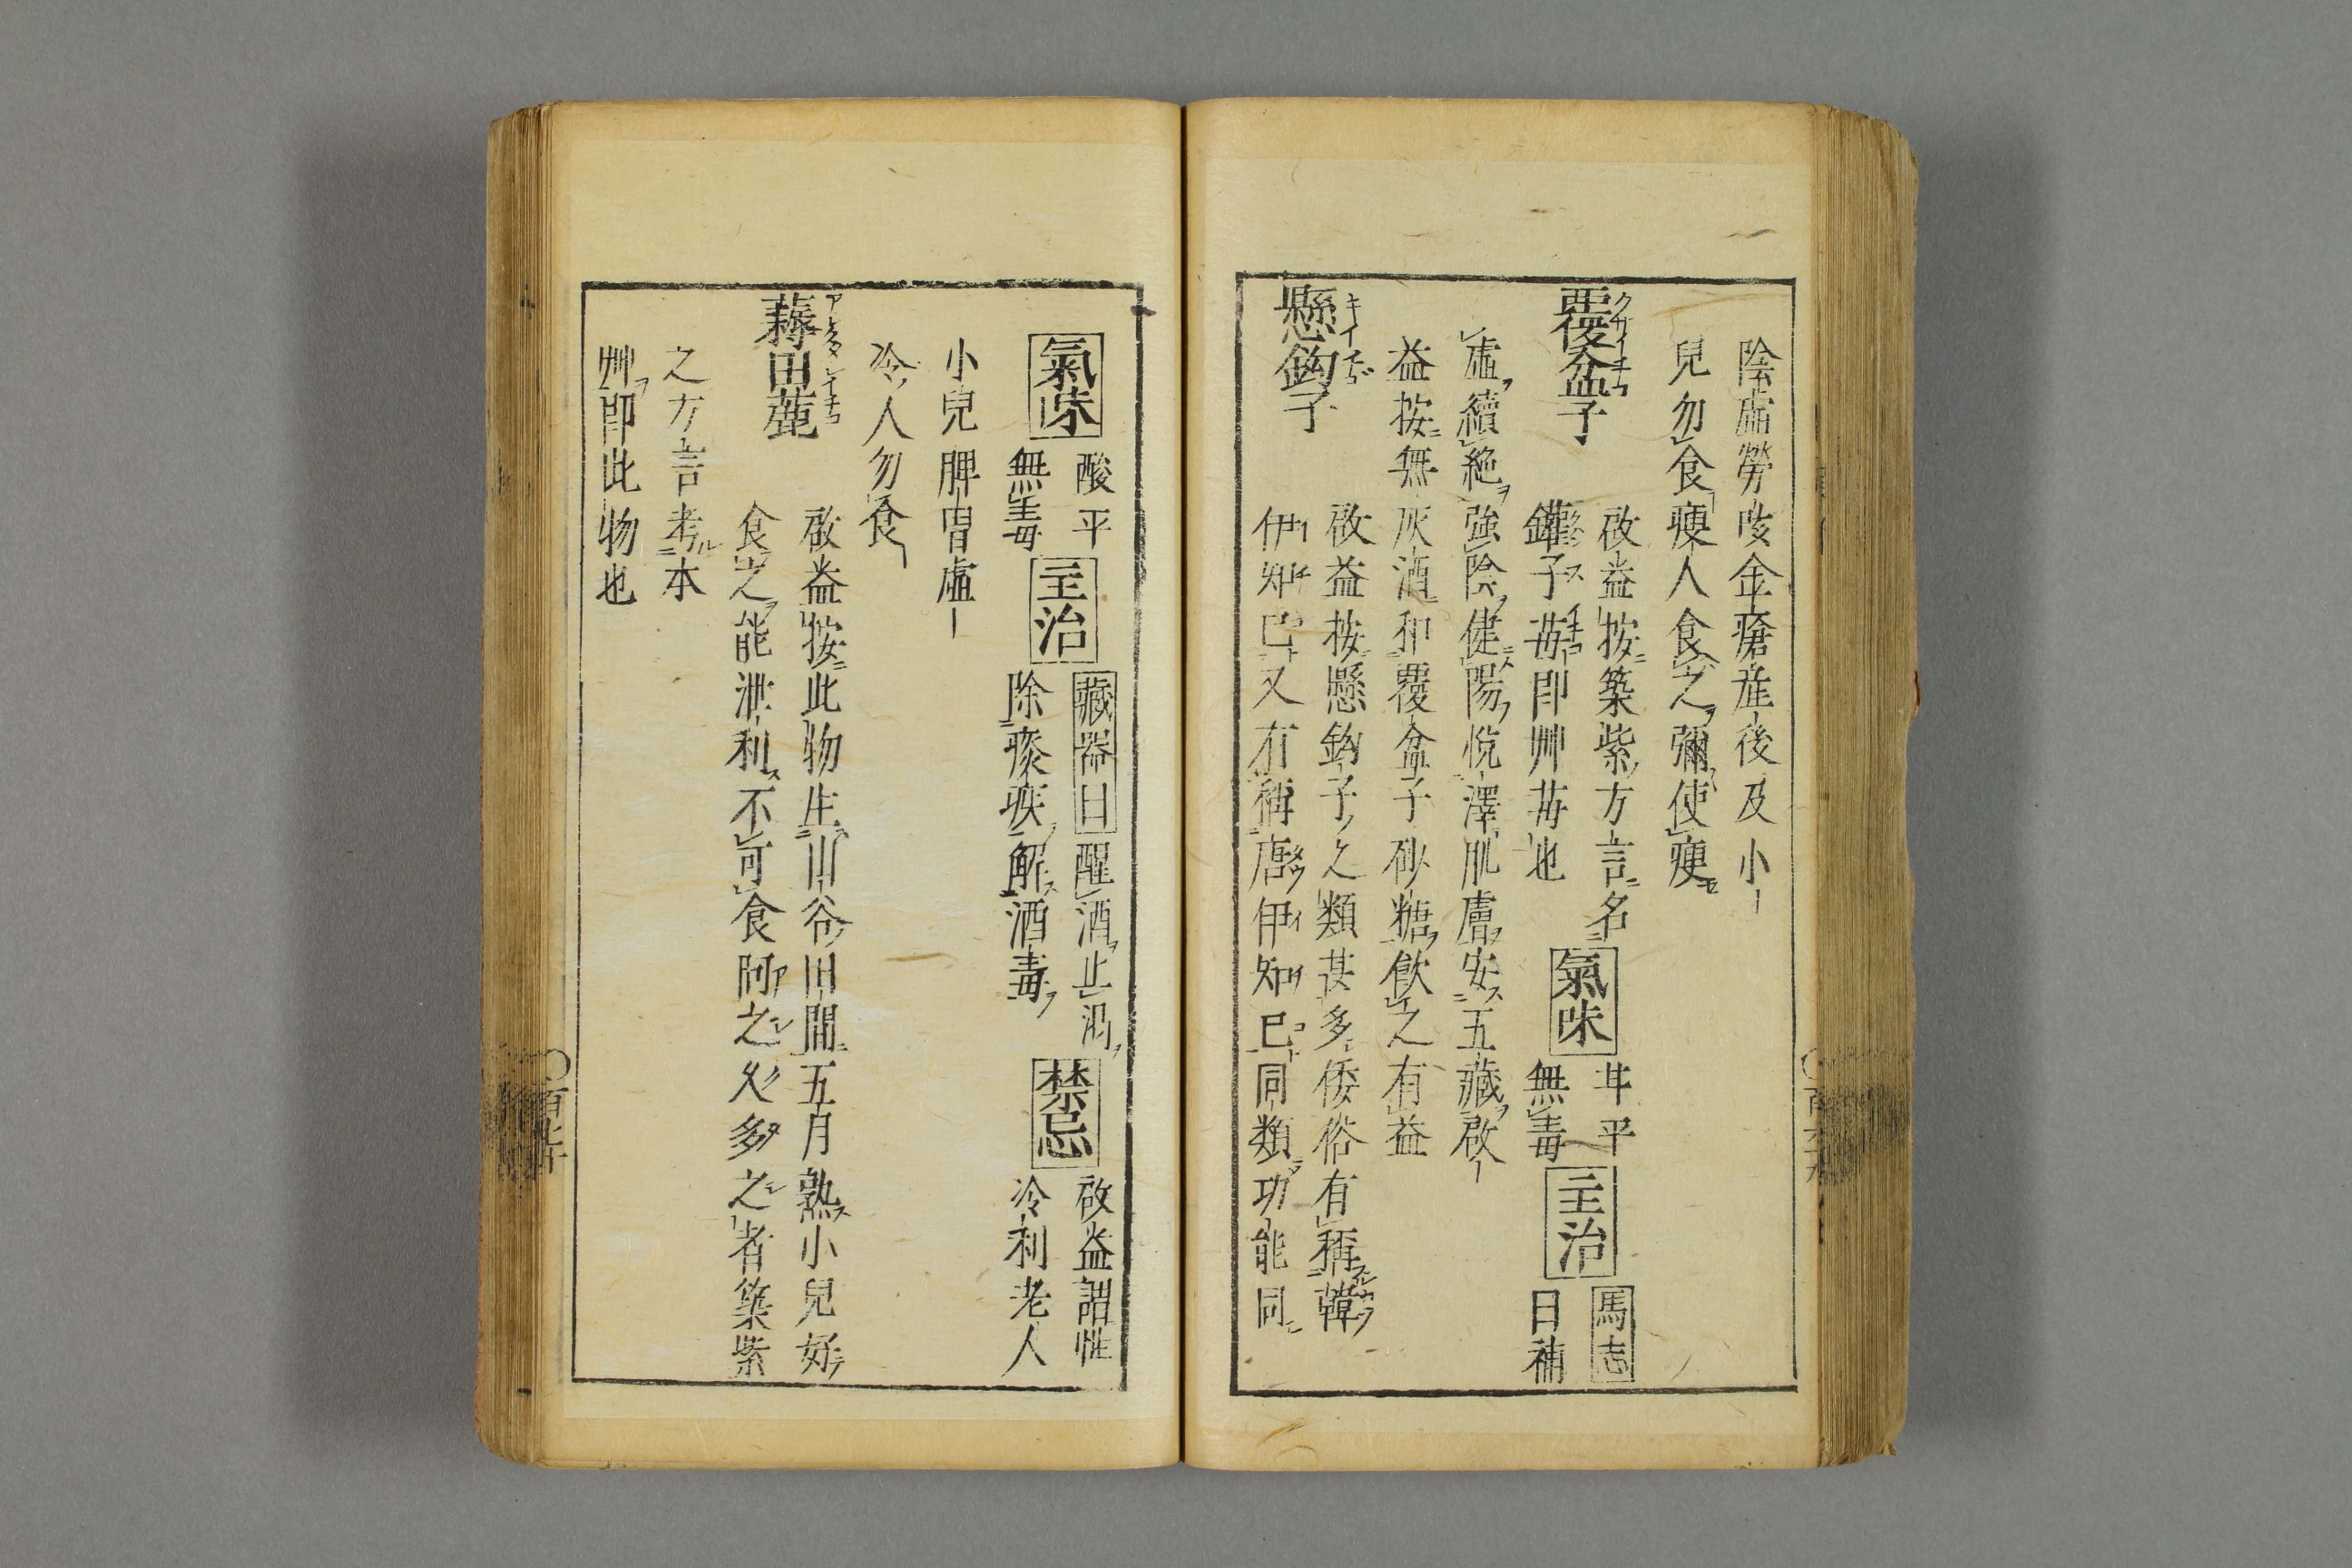 陰虛勞咳金瘡産後及小
兒勿食瘦人食之彌使瘦
覆盆子
啟益按築紫方言名
鑵子苺即艸苺也
氣味
甘平
無毒
主治
馬志
曰補
虛續絶強陰健陽悅澤肌膚安五藏啟
益按無灰酒和覆盆子砂糖飲之有益
懸鈎子
啟益按懸鈎子之類甚多倭俗有稱韓
伊知巳又有稱唐伊知巳同類功能同
氣味
酸平
無毒
主治
藏器曰醒酒止渴
除痰唾解酒毒
禁忌
啟益謂性
冷利老人
小兒脾胃虛
冷人勿食
蓐田藨
啟益按此物生山谷田間五月熟小兒好
食之能泄利不可食阿之久多之者築紫
之方言考本
艸即此物也